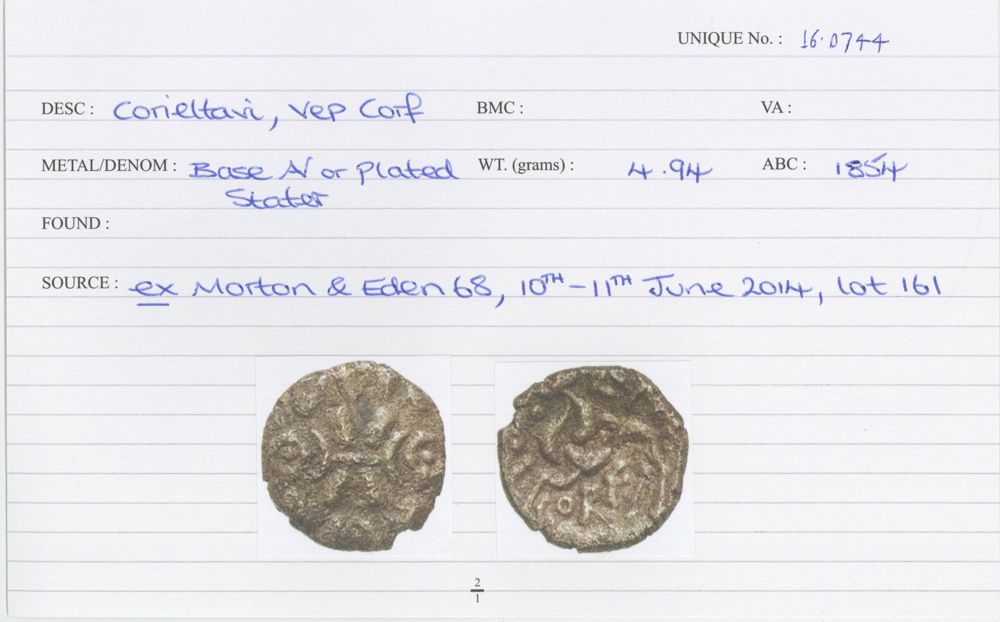 UNIQUE No. : 16.0744
DESC : Corieltavi, Vep Corf BMC : VA :
METAL/DENOM : Base AV or Plated WT. (grams) : 4.94 ABC : 1854
Stater
FOUND :
SOURCE : ex Morton & Eden 68, 10TH-11TH June 2014, lot 161
2
1